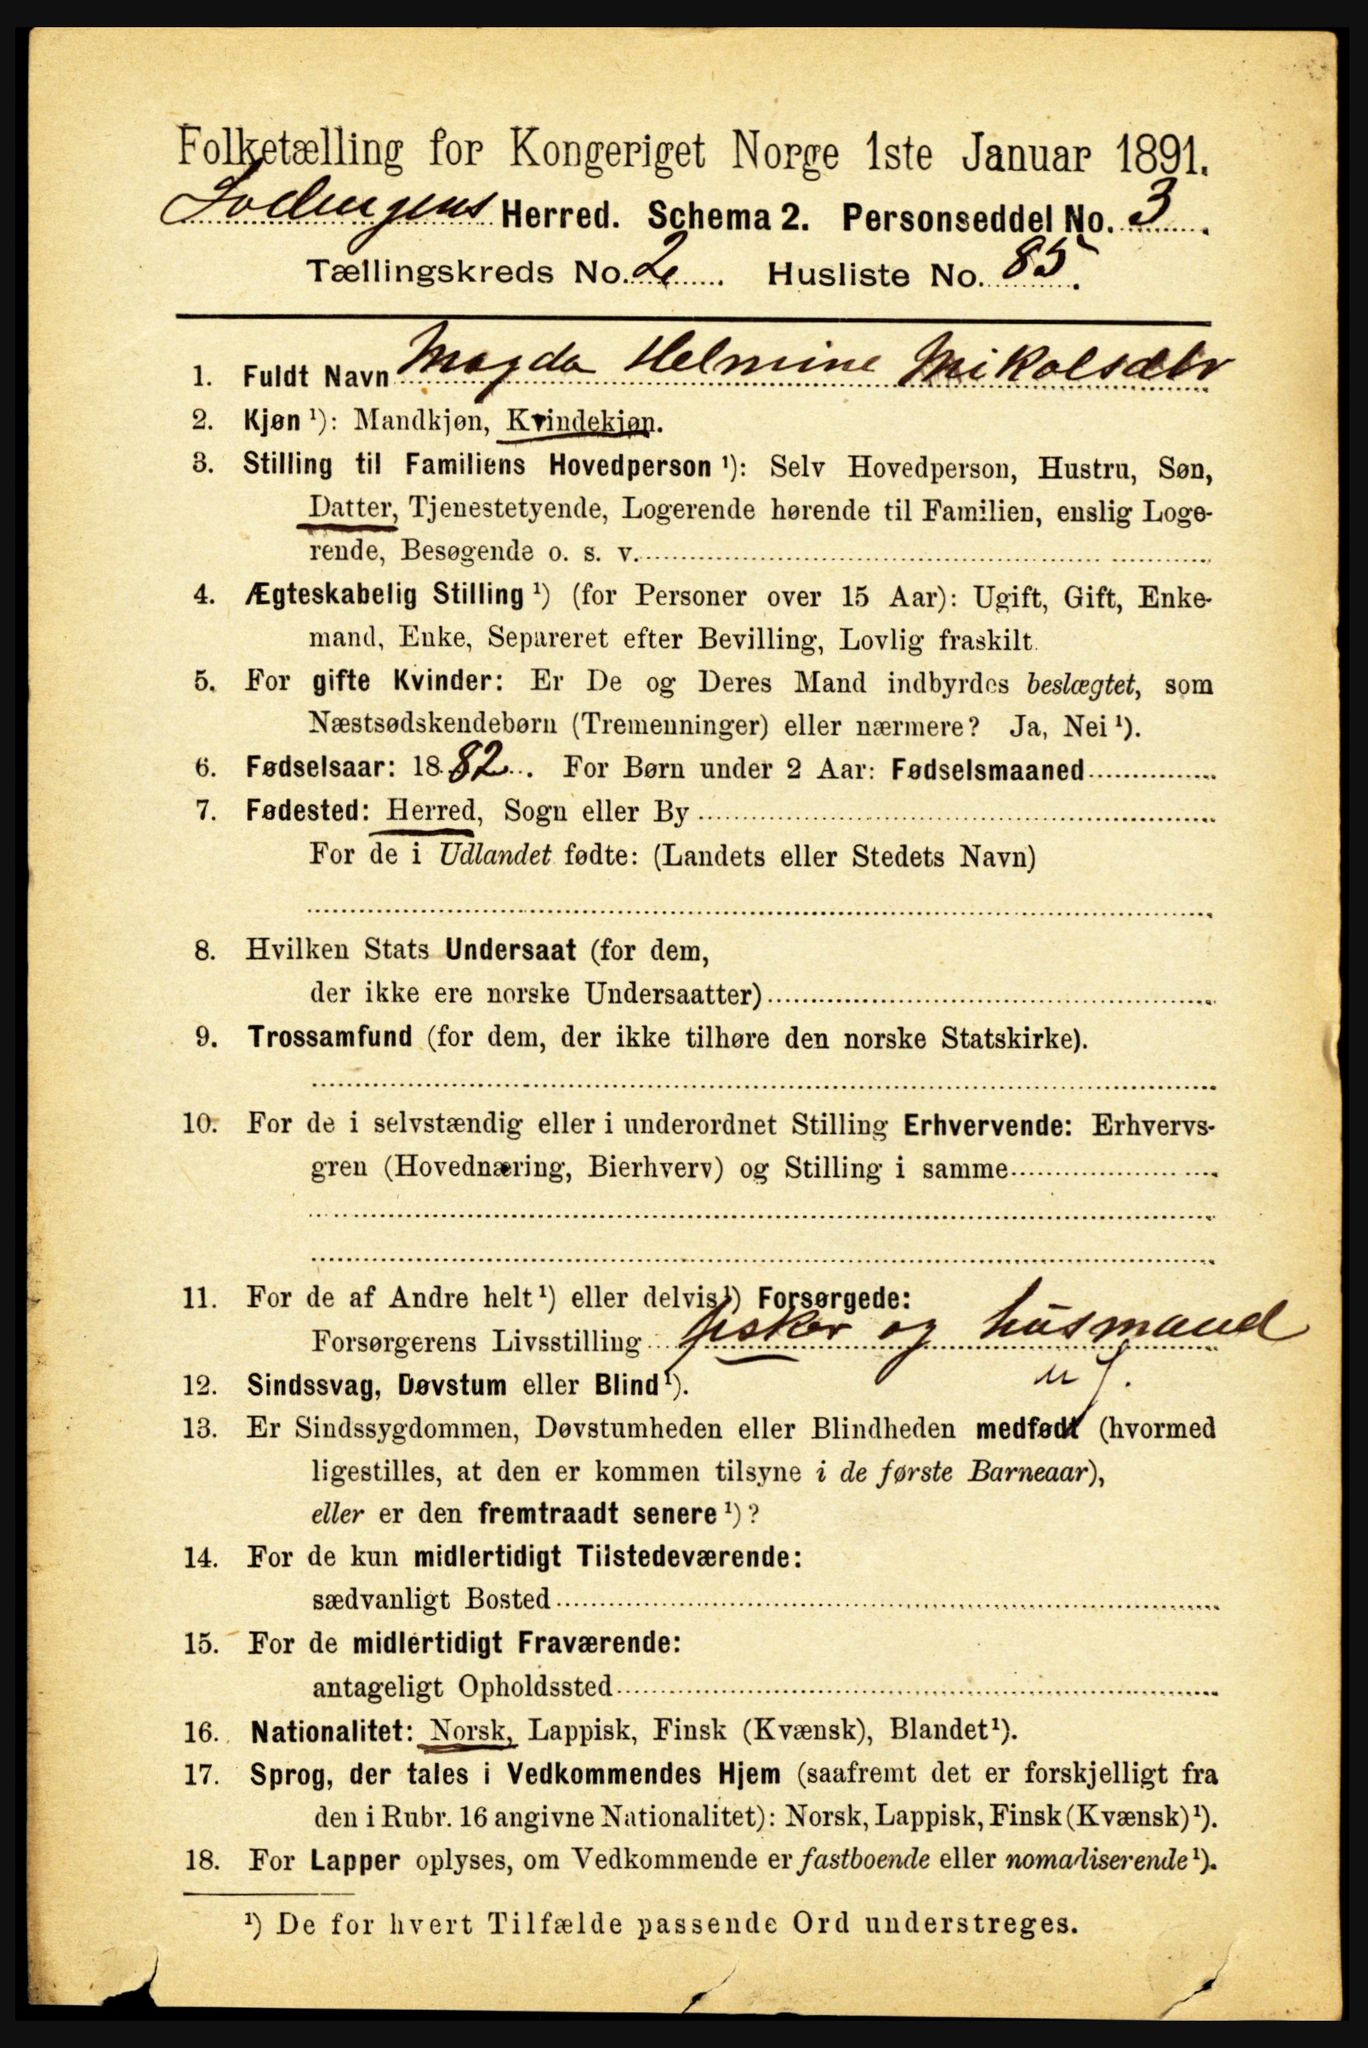 Folketælling for Kongeriget Norge 1ste Januar 1891.
Lødingens Herred. Schema 2. Personseddel No. 3.
Tællingskreds No. 2. Husliste No. 85.
1. Fuldt Navn Magda Helmine Mikalsdtr
2. Kjøn ¹): Mandkjøn, Kvindekjøn.
3. Stilling til Familiens Hovedperson ¹): Selv Hovedperson, Hustru, Søn,
Datter, Tjenestetyende, Logerende hørende til Familien, enslig Loge-
rende, Besøgende o. s. v.
4. Ægteskabelig Stilling ¹) (for Personer over 15 Aar): Ugift, Gift, Enke-
mand, Enke, Separeret efter Bevilling, Lovlig fraskilt.
5. For gifte Kvinder: Er De og Deres Mand indbyrdes beslægtet, som
Næstsødskendebørn (Tremenninger) eller nærmere? Ja, Nei ¹).
6. Fødselsaar: 1882. For Børn under 2 Aar: Fødselsmaaned
7. Fødested: Herred, Sogn eller By
For de i Udlandet fødte: (Landets eller Stedets Navn)
8. Hvilken Stats Undersaat (for dem,
der ikke ere norske Undersaatter)
9. Trossamfund (for dem, der ikke tilhøre den norske Statskirke).
10. For de i selvstændig eller i underordnet Stilling Erhvervende: Erhvervs-
gren (Hovednæring, Bierhverv) og Stilling i samme
11. For de af Andre helt ¹) eller delvis ¹) Forsørgede:
Forsørgerens Livsstilling fisker og husmand
m J.
12. Sindssvag, Døvstum eller Blind ¹).
13. Er Sindssygdommen, Døvstumheden eller Blindheden medfødt (hvormed
ligestilles, at den er kommen tilsyne i de første Barneaar),
eller er den fremtraadt senere ¹)?
14. For de kun midlertidigt Tilstedeværende:
sædvanligt Bosted
15. For de midlertidigt Fraværende:
antageligt Opholdssted
16. Nationalitet: Norsk, Lappisk, Finsk (Kvænsk), Blandet ¹).
17. Sprog, der tales i Vedkommendes Hjem (saafremt det er forskjelligt fra
den i Rubr. 16 angivne Nationalitet): Norsk, Lappisk, Finsk (Kvænsk) ¹).
18. For Lapper oplyses, om Vedkommende er fastboende eller nomadiserende ¹).
¹) De for hvert Tilfælde passende Ord understreges.